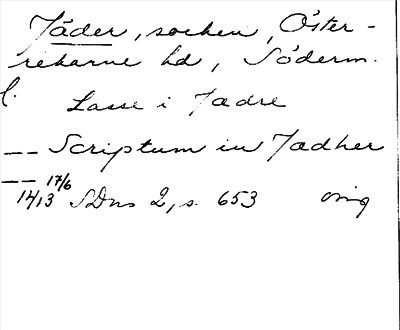 Jäder, socken, Öster-
rekarne hd, Söderm.
l. Lasse i Jædre
-- Scriptum in Jædher
-- 17/6
1413 SDns 2, s. 653 orig